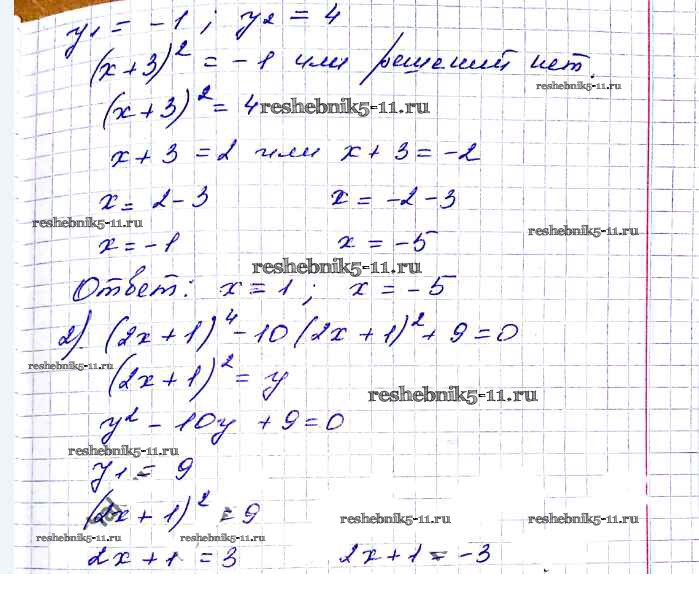 y₁ = -1 ; y₂ = 4
(x+3)² = -1 или решений нет.
reshebnik5-11.ru
(x+3)² = 4
reshebnik5-11.ru
x+3 = 2 или x+3 = -2
x = 2-3 x = -2-3
reshebnik5-11.ru reshebnik5-11.ru
x = -1 x = -5
reshebnik5-11.ru
Ответ: x = 1 ; x = -5
2) (2x+1)⁴ - 10(2x+1)² + 9 = 0
reshebnik5-11.ru
(2x+1)² = y
reshebnik5-11.ru
y² - 10y + 9 = 0
reshebnik5-11.ru
y₁ = 9
(2x+1)² = 9
reshebnik5-11.ru reshebnik5-11.ru
reshebnik5-11.ru reshebnik5-11.ru
2x+1 = 3 2x+1 = -3